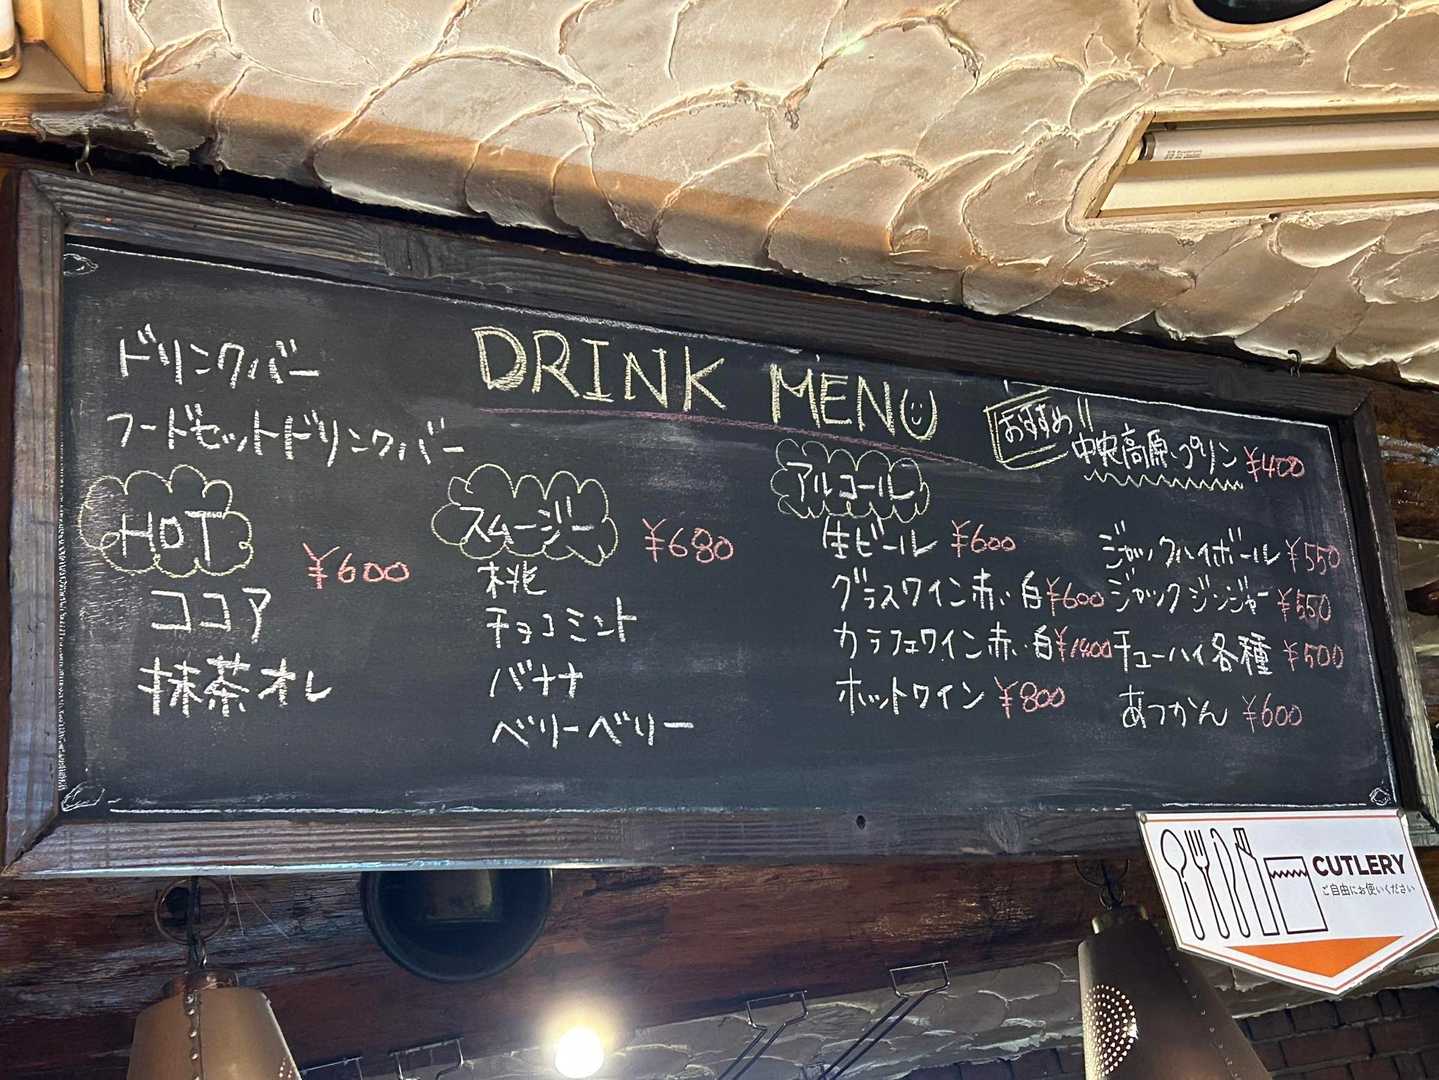 DRINK MENU
ドリンクバー
フードセットドリンクバー
おすすめ!!
中央高原プリン ¥400
HOT ¥600
ココア
抹茶オレ
スムージー ¥680
桃
チョコミント
バナナ
ベリーベリー
アルコール
生ビール ¥600
グラスワイン赤・白 ¥600
カラフェワイン赤・白 ¥1400
ホットワイン ¥800
ジャックハイボール ¥550
ジャックジンジャー ¥550
チューハイ各種 ¥500
あつかん ¥600
CUTLERY
ご自由にお使いください